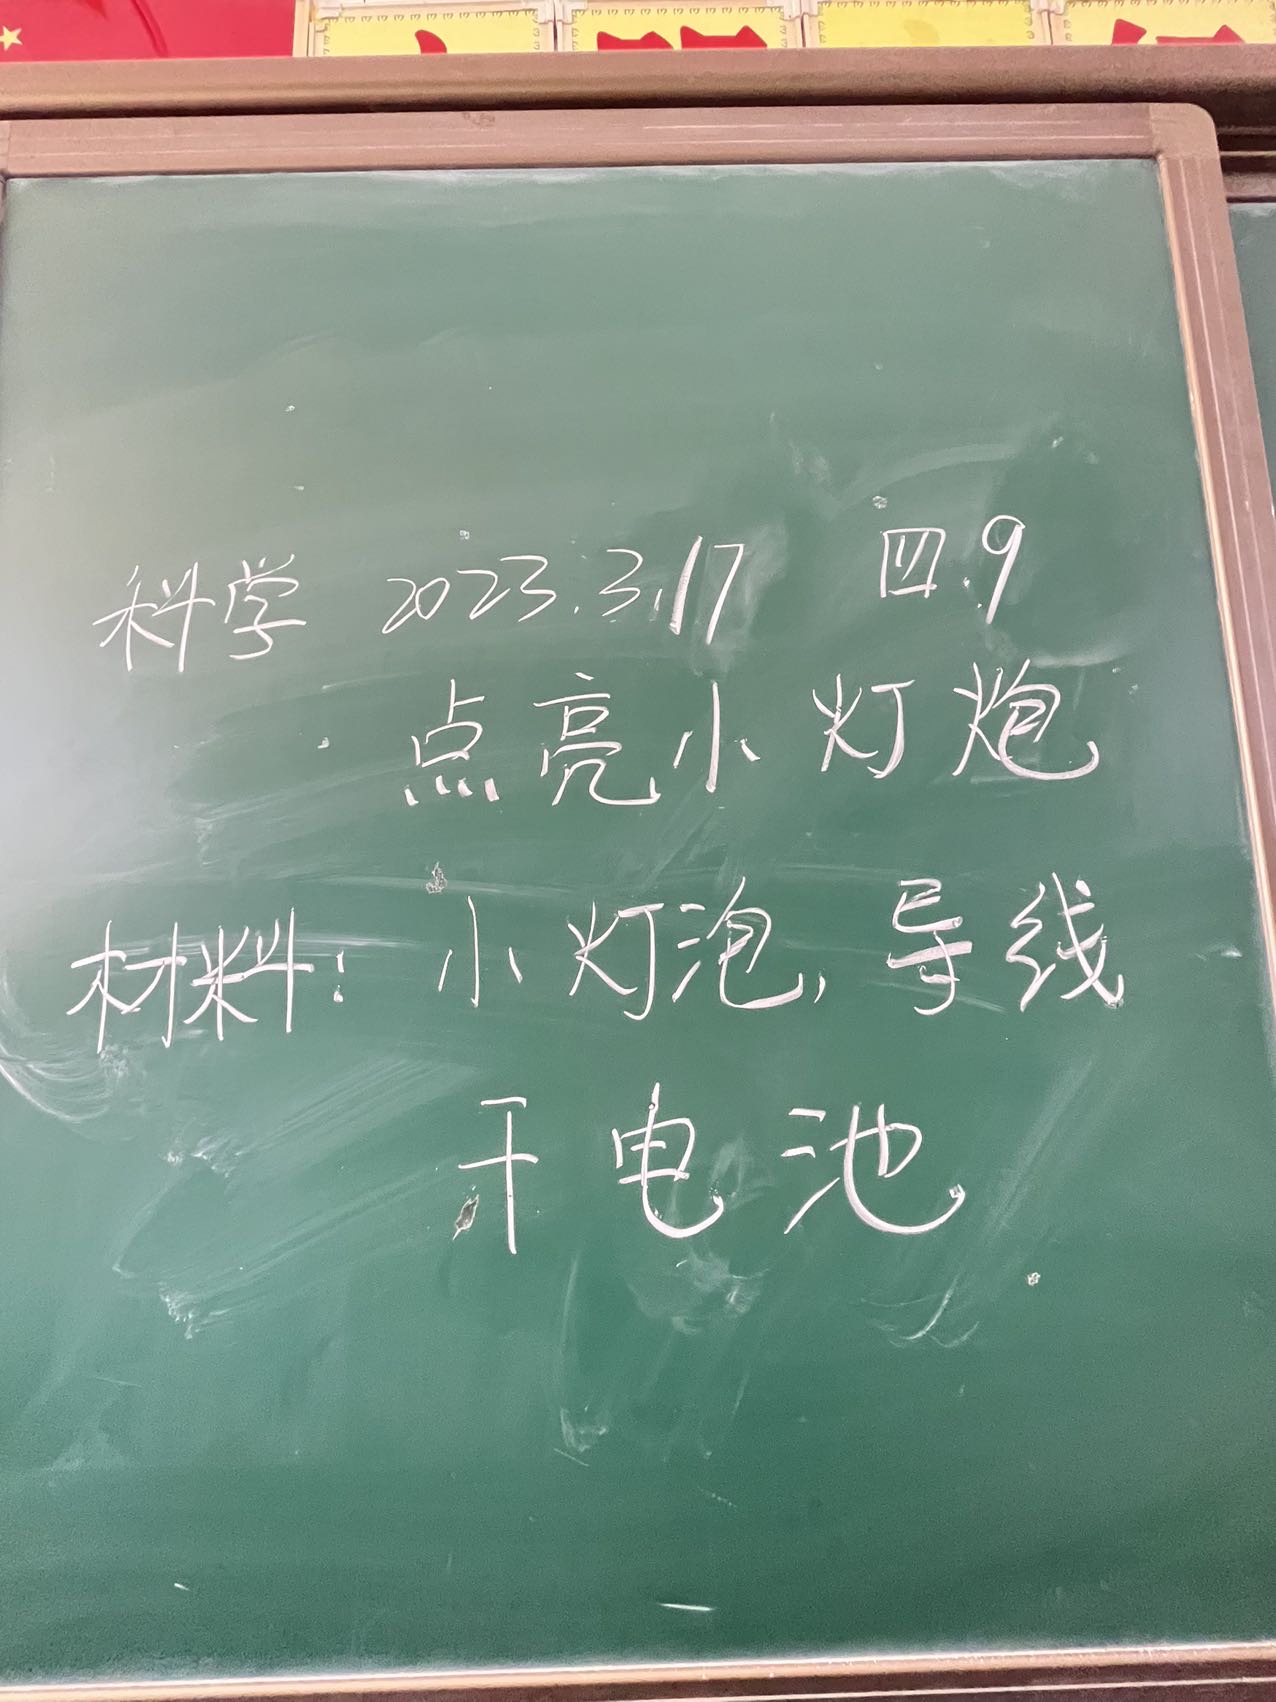 科学 2023.3.17 四.9
点亮小灯炮
材料: 小灯泡, 导线
干电池